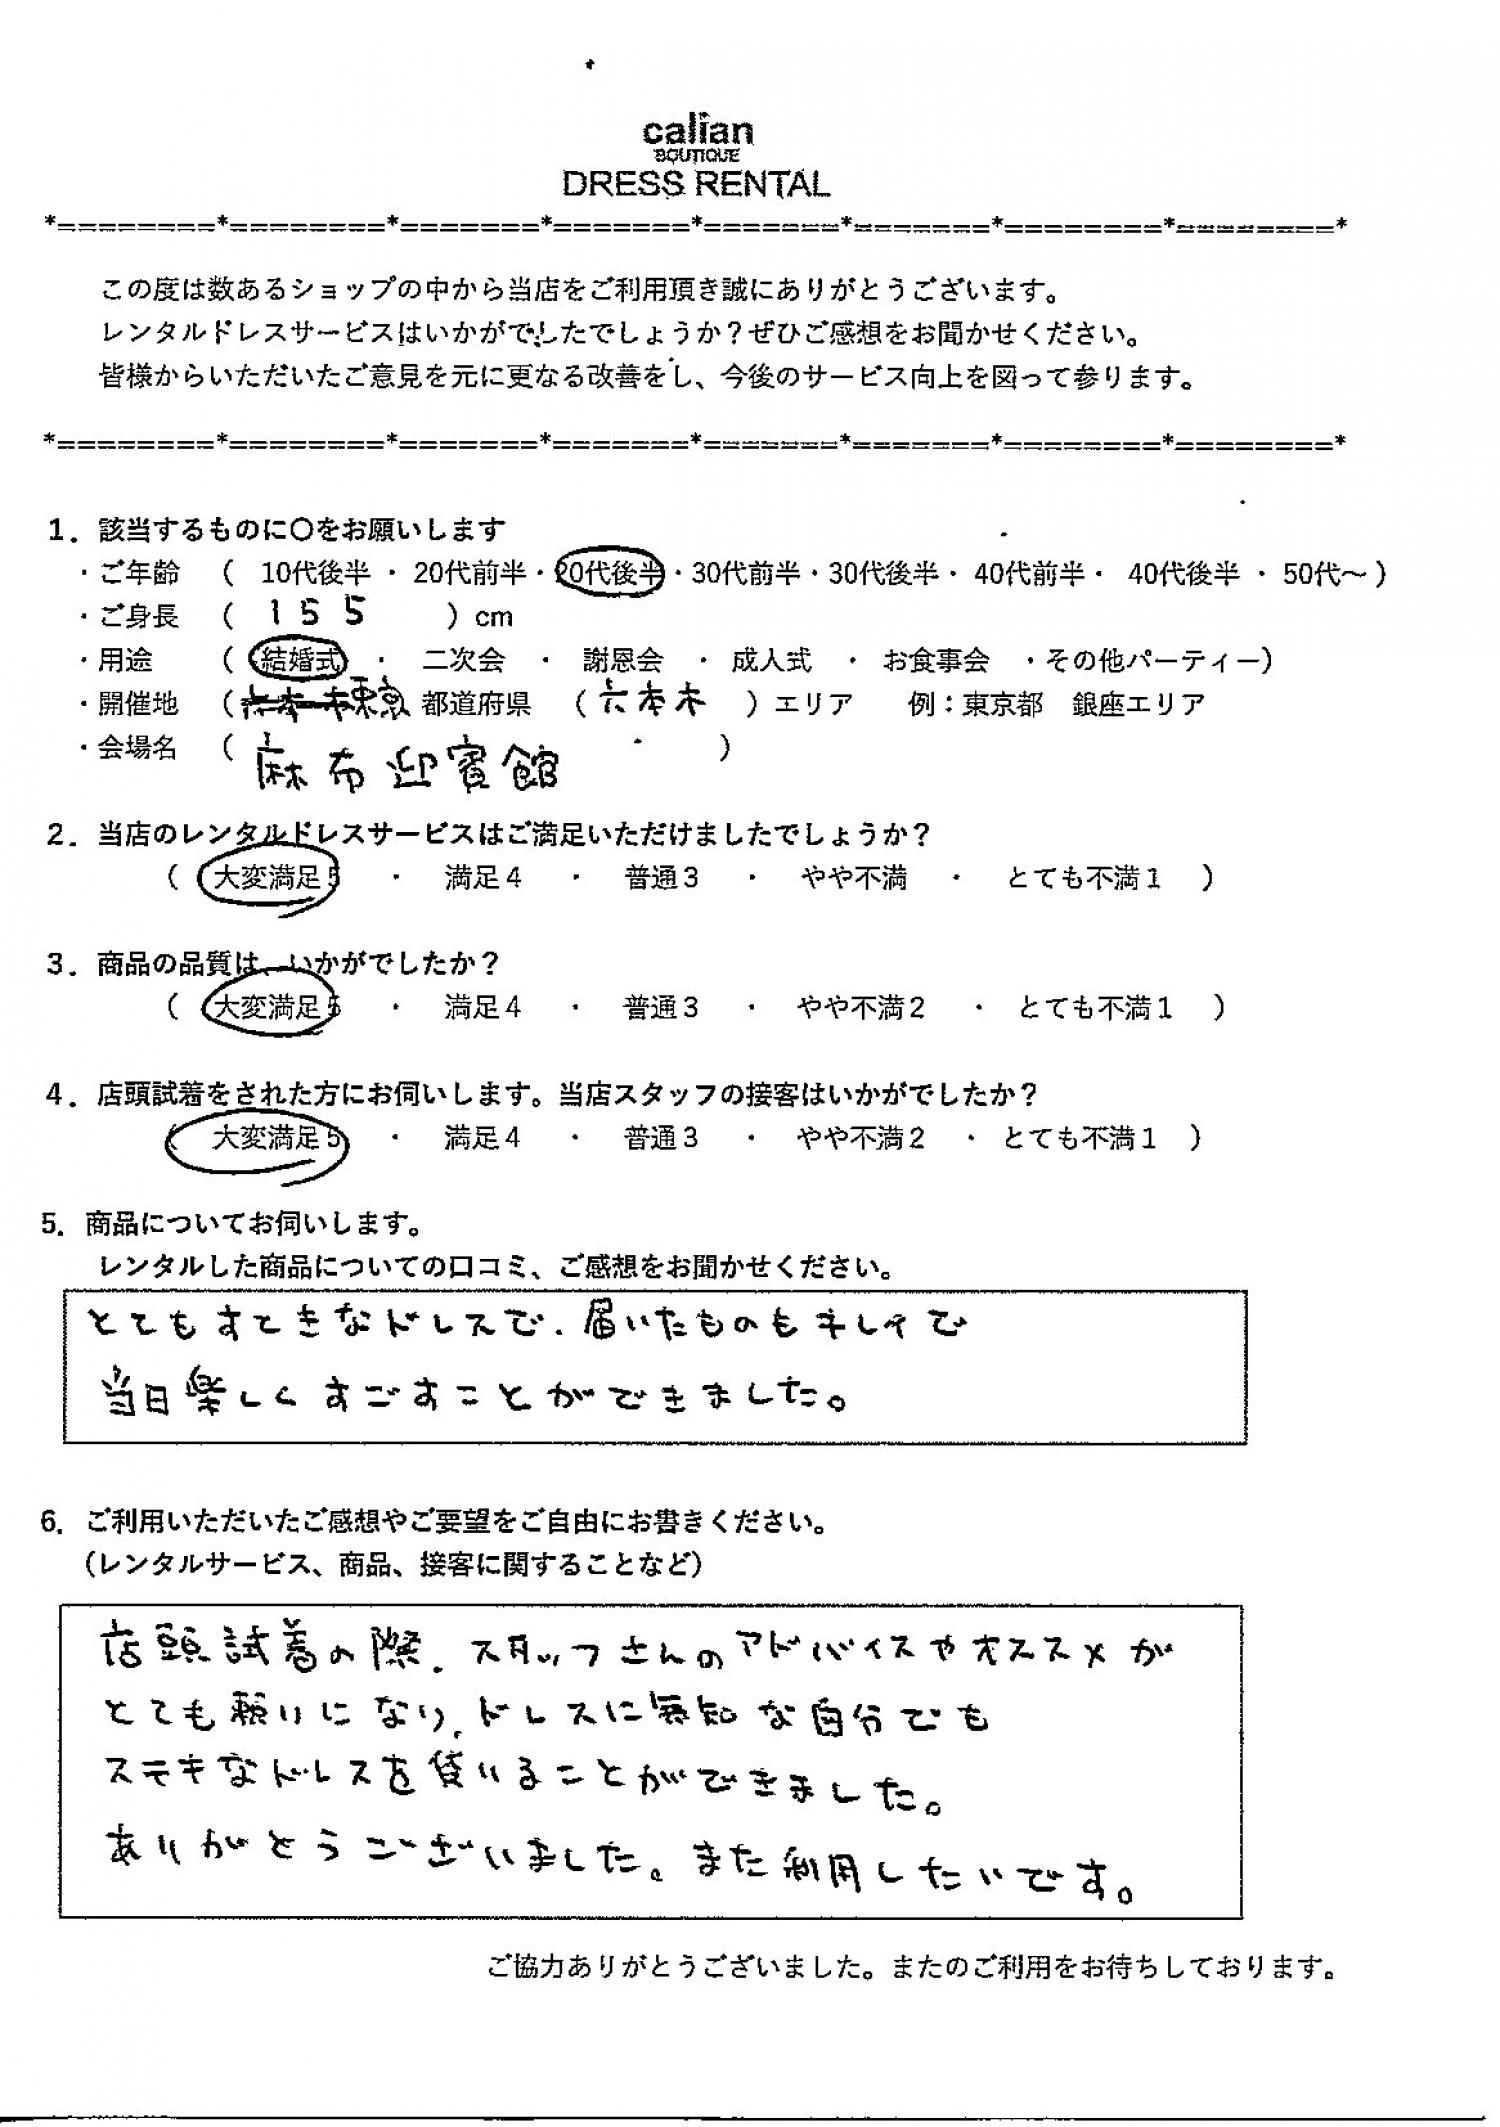 calian
BOUTIQUE
DRESS RENTAL
*========*========*=======*=======*=======*=======*========*========*
この度は数あるショップの中から当店をご利用頂き誠にありがとうございます。
レンタルドレスサービスはいかがでしたでしょうか？ぜひご感想をお聞かせください。
皆様からいただいたご意見を元に更なる改善をし、今後のサービス向上を図って参ります。
*========*========*=======*=======*=======*=======*========*========*
1．該当するものに〇をお願いします
・ご年齢 （ 10代後半 ・ 20代前半・20代後半・30代前半・30代後半・ 40代前半・ 40代後半 ・ 50代～）
・ご身長 （ 155 ）cm
・用途 （ 結婚式 ・ 二次会 ・ 謝恩会 ・成人式 ・ お食事会 ・その他パーティー）
・開催地 （六本木東京 都道府県 （ 六本木 ）エリア 例：東京都 銀座エリア
・会場名 （ 麻布迎賓館 ）
2．当店のレンタルドレスサービスはご満足いただけましたでしょうか？
（ 大変満足５ ・ 満足４ ・ 普通３ ・ やや不満 ・ とても不満１ ）
3．商品の品質は、いかがでしたか？
（ 大変満足５ ・ 満足４ ・ 普通３ ・ やや不満２ ・ とても不満１ ）
4．店頭試着をされた方にお伺いします。当店スタッフの接客はいかがでしたか？
（ 大変満足５ ・ 満足４ ・ 普通３ ・ やや不満２ ・ とても不満１ ）
5．商品についてお伺いします。
レンタルした商品についての口コミ、ご感想をお聞かせください。
とてもすてきなドレスで、届いたものもキレイで
当日楽しくすごすことができました。
6．ご利用いただいたご感想やご要望をご自由にお書きください。
（レンタルサービス、商品、接客に関することなど）
店頭試着の際、スタッフさんのアドバイスやオススメが
とても頼りになり、ドレスに無知な自分でも
ステキなドレスを借りることができました。
ありがとうございました。また利用したいです。
ご協力ありがとうございました。またのご利用をお待ちしております。